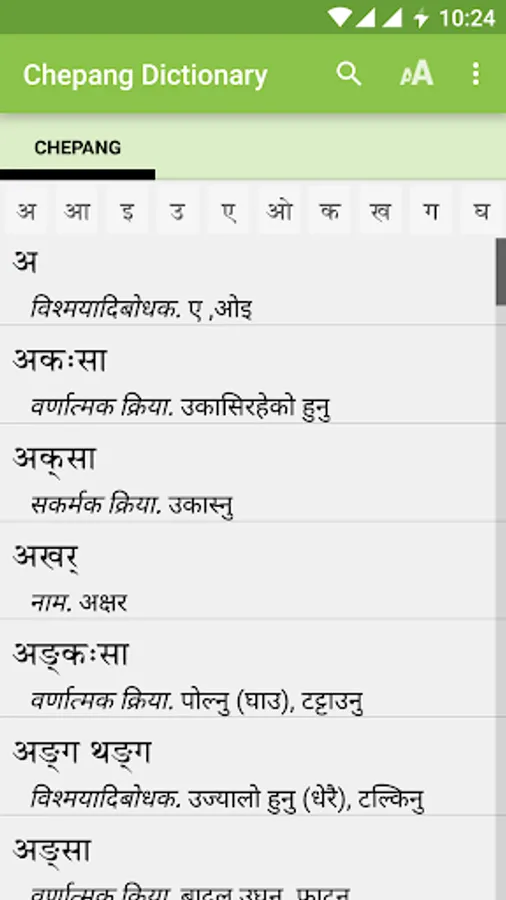 10:24
Chepang Dictionary
CHEPANG
अ आ इ उ ए ओ क ख ग घ
अ
विश्मयादिबोधक. ए ,ओइ
अकःसा
वर्णात्मक क्रिया. उकासिरहेको हुनु
अक्‌सा
सकर्मक क्रिया. उकास्नु
अखर्
नाम. अक्षर
अङ्कःसा
वर्णात्मक क्रिया. पोल्नु (घाउ), टट्टाउनु
अङ्ग थङ्ग
विश्मयादिबोधक. उज्यालो हुनु (धेरै), टल्किनु
अङ्सा
वर्णात्मक क्रिया.